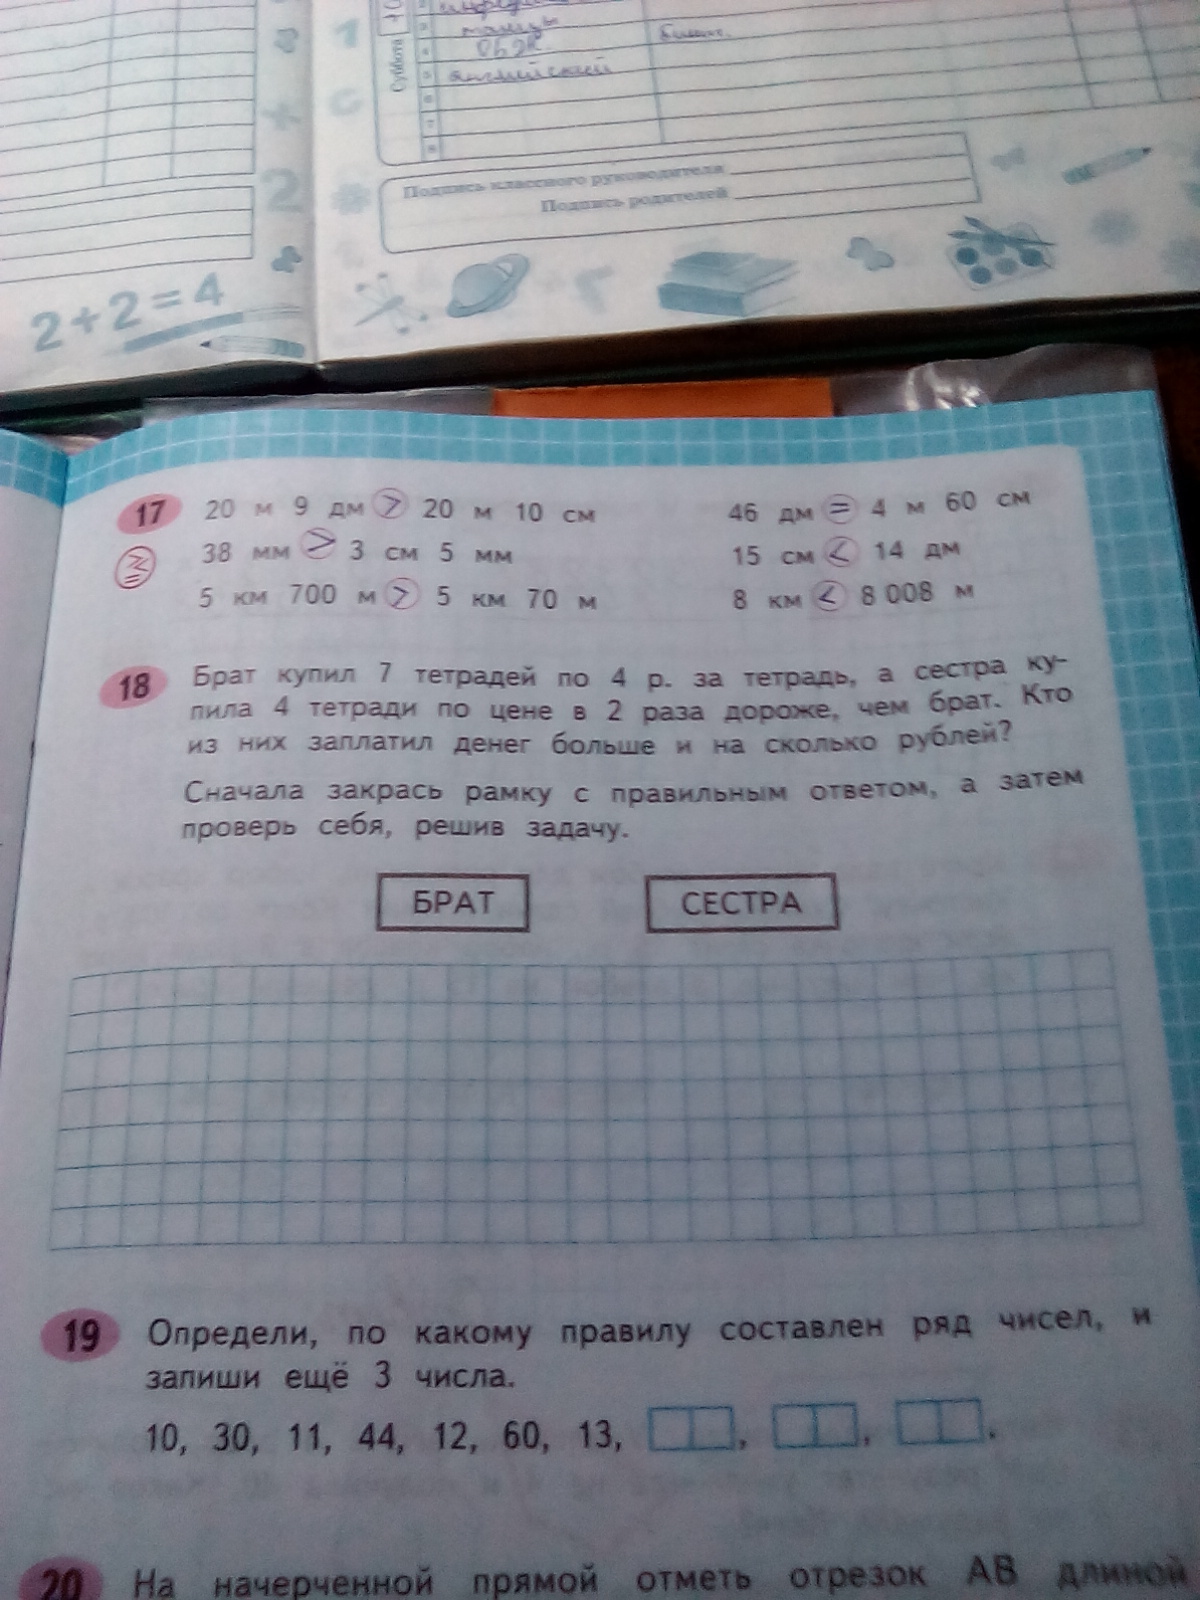 Суббота
танцы
ОБЖ
английский
Подпись классного руководителя
Подпись родителей
2+2=4
17 20 м 9 дм > 20 м 10 см 46 дм = 4 м 60 см
38 мм > 3 см 5 мм 15 см < 14 дм
5 км 700 м > 5 км 70 м 8 км < 8 008 м
18 Брат купил 7 тетрадей по 4 р. за тетрадь, а сестра ку-
пила 4 тетради по цене в 2 раза дороже, чем брат. Кто
из них заплатил денег больше и на сколько рублей?
Сначала закрась рамку с правильным ответом, а затем
проверь себя, решив задачу.
БРАТ СЕСТРА
19 Определи, по какому правилу составлен ряд чисел, и
запиши ещё 3 числа.
10, 30, 11, 44, 12, 60, 13, , , .
20 На начерченной прямой отметь отрезок АВ длиной